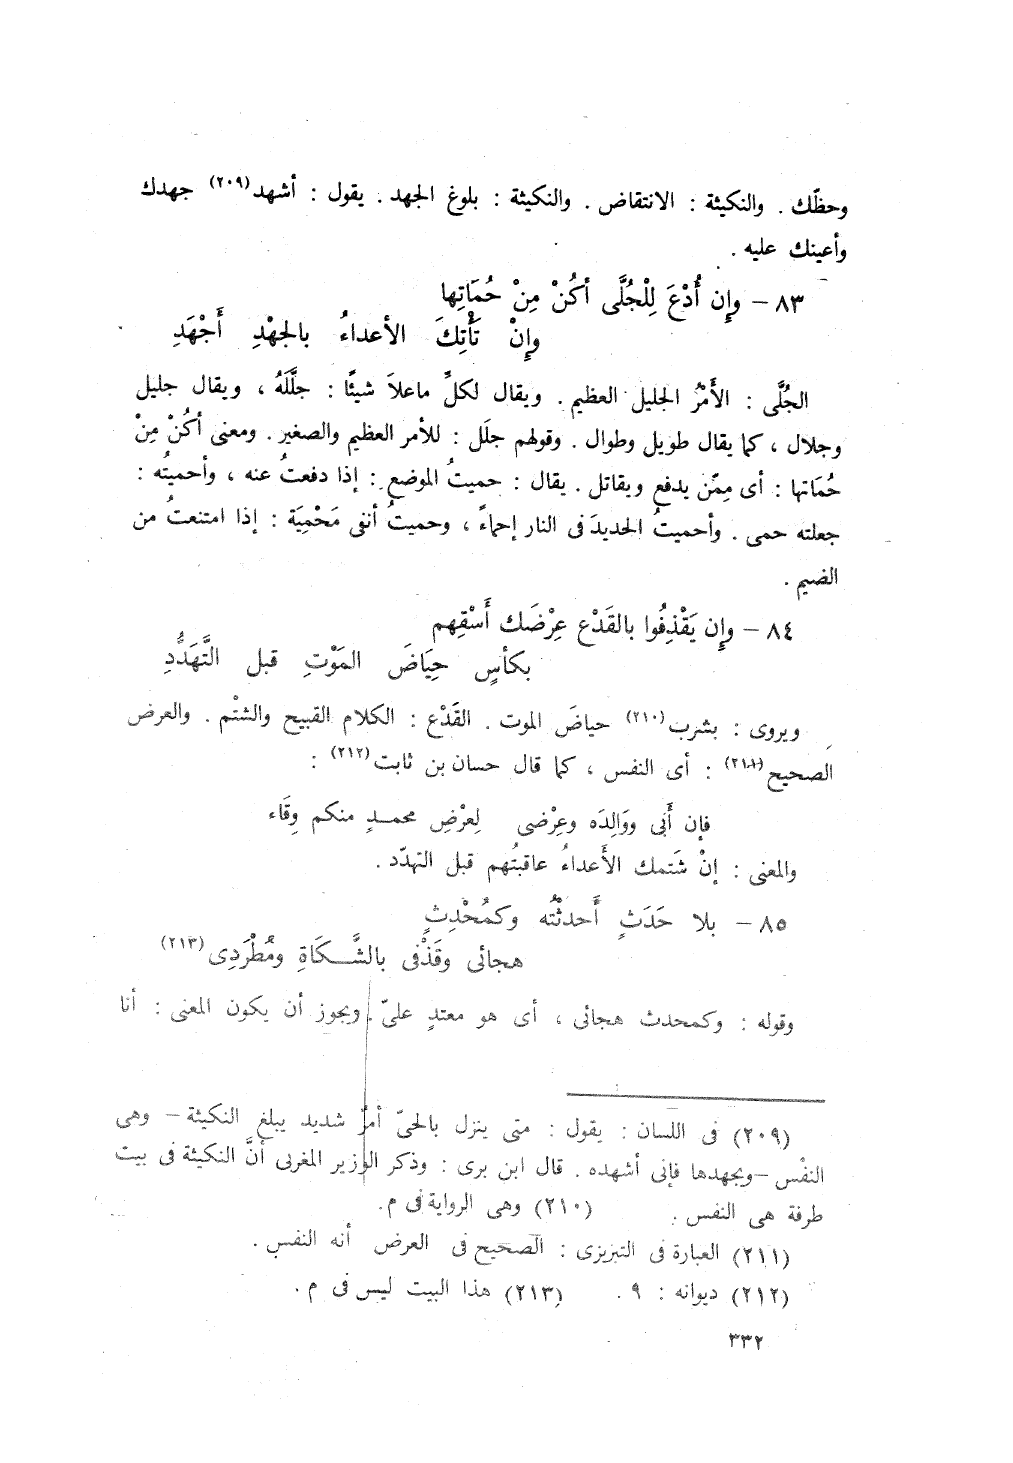 وحظّك . والنكيثة : الانتقاض . والنكيثة : بلوغ الجهد . يقول : أشهد(٢٠٩) جهدك
وأعينك عليه .
٨٣ – وإِن أُدْعَ لِلْجُلَّى أكُنْ مِنْ حُمَاتِها
وإِنْ تَأْتِكَ الأعداءُ بالجهْدِ أَجْهَدِ
الجُلَّى : الأَمْرُ الجليل العظيم . ويقال لكلِّ ماعلاَ شيئًا : جلَّلَهُ ، ويقال جليل
وجلال ، كما يقال طويل وطوال . وقولهم جلَل : للأمر العظيم والصغير . ومعنى أكُنْ مِنْ
حُمَاتها : أى مِمّن يدفع ويقاتل . يقال : حميتُ الموضع : إذا دفعتُ عنه ، وأحميتُه :
جعلته حمى . وأحميتُ الحديدَ فى النار إحماءً ، وحميتُ أنفى مَحْمِيَة : إذا امتنعتُ من
الضيم .
٨٤ – وإِن يَقْذِفُوا بالقَدْع عِرْضَك أَسْقِهِم
بكأسِ حِيَاضَ المَوْتِ قبل التَّهَدُّدِ
ويروى : بشرب(٢١٠) حياضَ الموت . القَدْع : الكلام القبيح والشتْم . والعرض
الصحيح(٢١١) : أى النفس ، كما قال حسان بن ثابت(٢١٢) :
فإن أَبى ووَالِدَه وعِرْضى لِعرْضِ محمـدٍ منكم وِقَاء
والمعنى : إنْ شَتمك الأَعداءُ عاقبتُهم قبل التهدّد .
٨٥ – بلا حَدَثٍ أَحدثْتُه وكمُحْدِثٍ
هجائى وقَذْفى بالشَّـكَاةِ ومُطْرَدِى(٢١٣)
وقوله : وكمحدث هجائى ، أى هو معتدٍ علىّ . ويجوز أن يكون المعنى : أنا
(٢٠٩) فى اللسان : يقول : متى ينزل بالحىّ أمرٌ شديد يبلغ النكيثة – وهى
النفْس – ويجهدها فإنى أشهده . قال ابن برى : وذكر الوزير المغربى أنَّ النكيثة فى بيت
طرفة هى النفس . (٢١٠) وهى الرواية فى م.
(٢١١) العبارة فى التبريزى : الصحيح فى العرض أنه النفس .
(٢١٢) ديوانه : ٩ . (٢١٣) هذا البيت ليس فى م .
٣٣٢